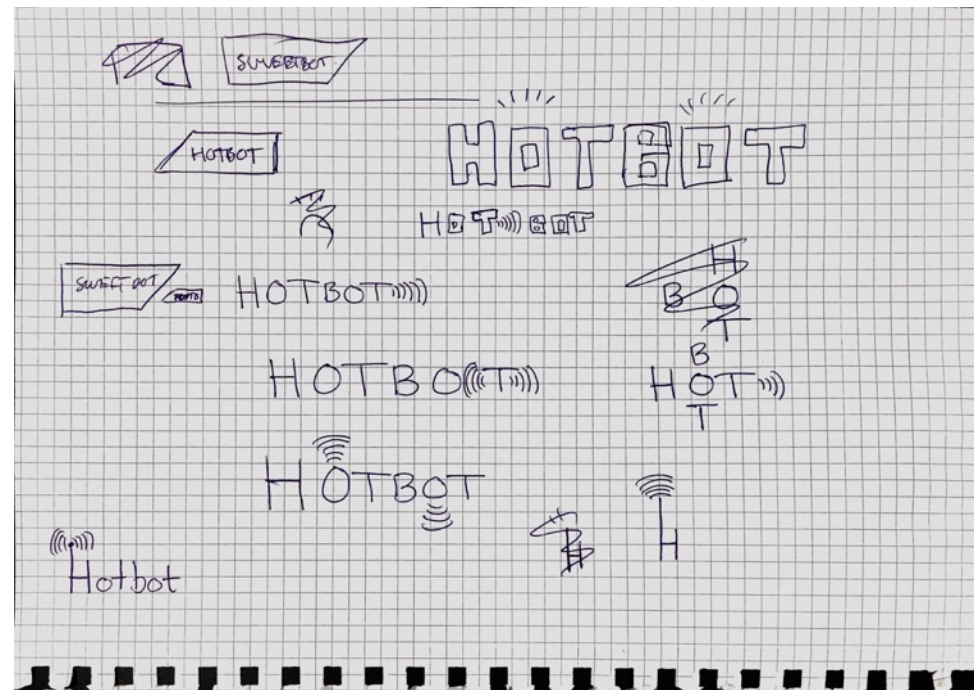 SWEETBOT
HOTBOT
HOTBOT
HOT BOT
SWEETBOT
HOTBOT
H
B O
T
HOTBOT
B
HOT
T
HOTBOT
H
H
Hotbot